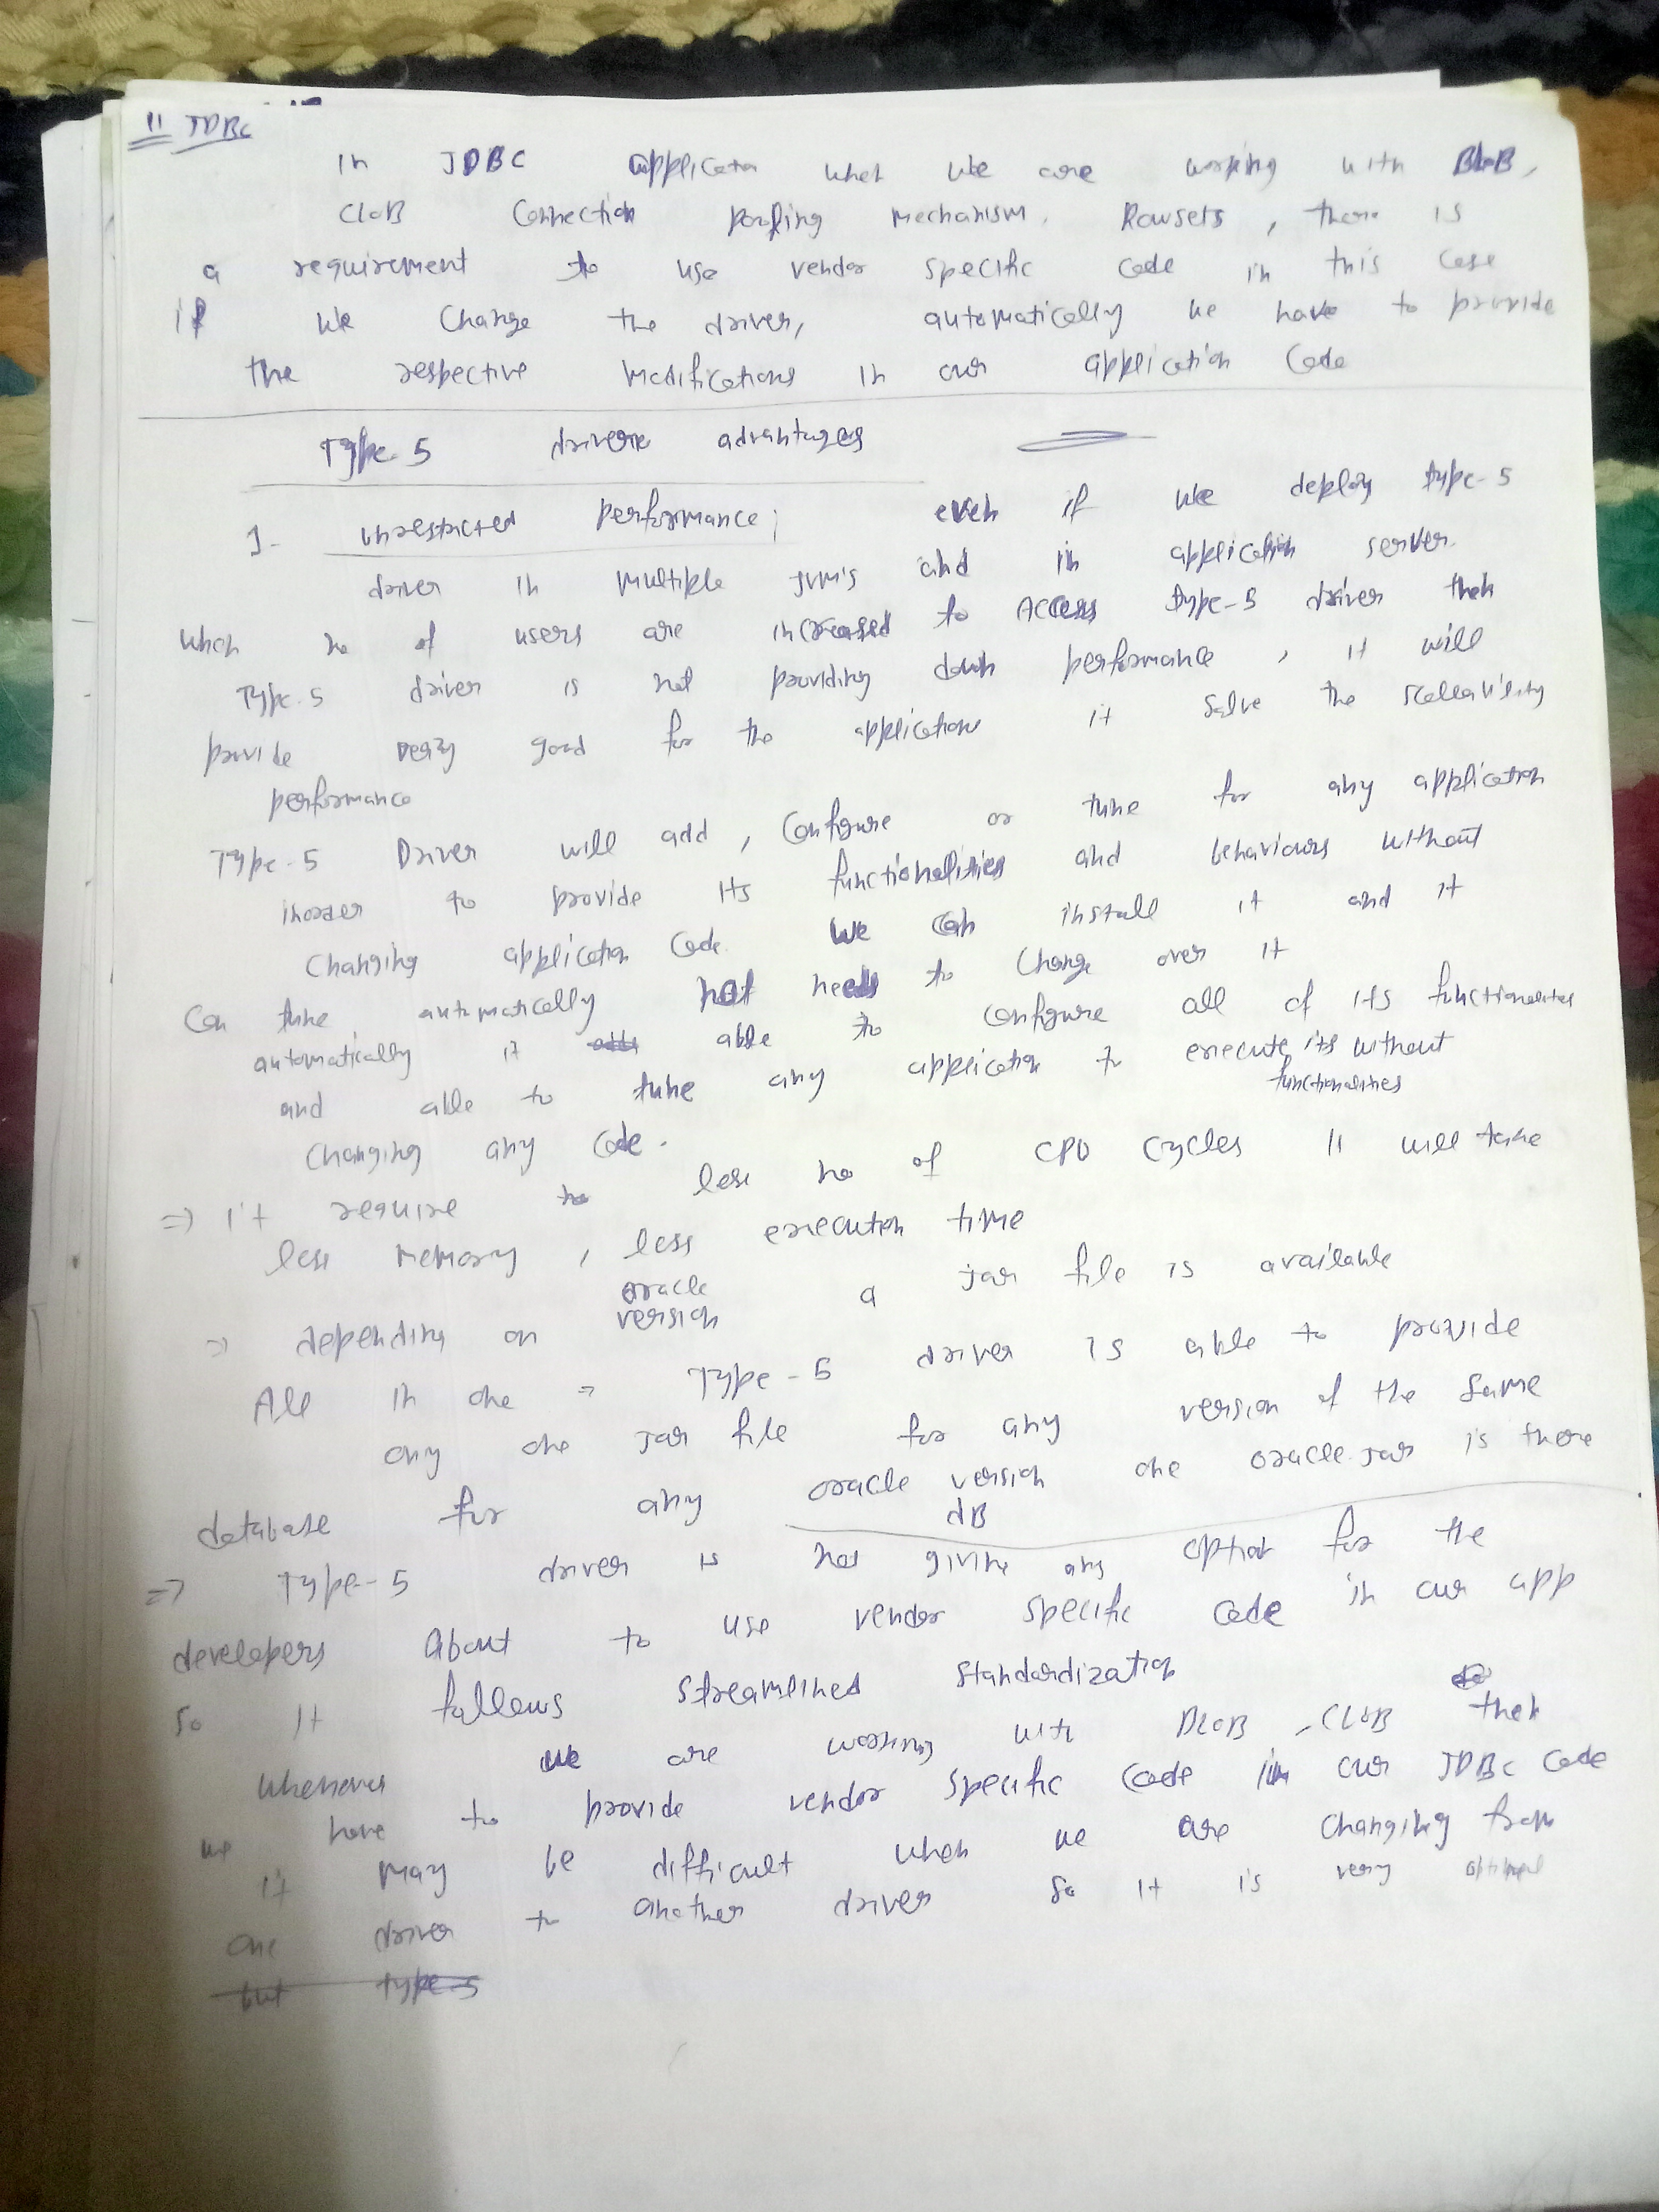 11 JDBC
In JDBC application when we are working with BLOB,
CLOB Connection pooling mechanism. Rowsets, there is
a requirement to use vendor specific code in this case
if we change the driver, automatically we have to provide
the respective modifications in our application Code
Type-5 drivers advantages
1. unrestricted performance; even if we deploy type-5
driver in multiple JVM's and in application server.
when no of users are increased to Access type-5 driver then
Type-5 driver is not providing down performance, it will
provide very good for the application it solve the scalability
performance
Type-5 Driver will add, Configure or tune for any application
inorder to provide its functionalities and behaviours without
Changing application Code. We can install it and it
Can tune automatically not needs to change over it
automatically it able to configure all of its functionalities
and able to tune any application to execute its functionalities without
Changing any Code.
=> it require less no of CPU cycles It will take
less memory, less execution time
=> depending on oracle version a jar file is available
All in one => Type-5 driver is able to provide
only one jar file for any version of the same
database for any oracle version dB one oracle.jar is there
=> Type-5 driver is not giving any option for the
developers about to use vendor specific code in our app
so it follows streamlined standardization
whenever we are working with BLOB, CLOB then
we have to provide vendor specific code in our JDBC code
it may be difficult when we are changing from
one driver to another driver so it is very
but type-5